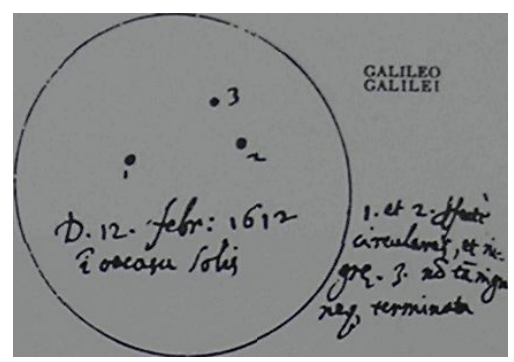 GALILEO
GALILEI
3
1
2
D. 12. febr: 1612
ī occasu Solis
1. et 2.
circulares, et ni-
grę. 3. nō tā nigra
neq, terminata